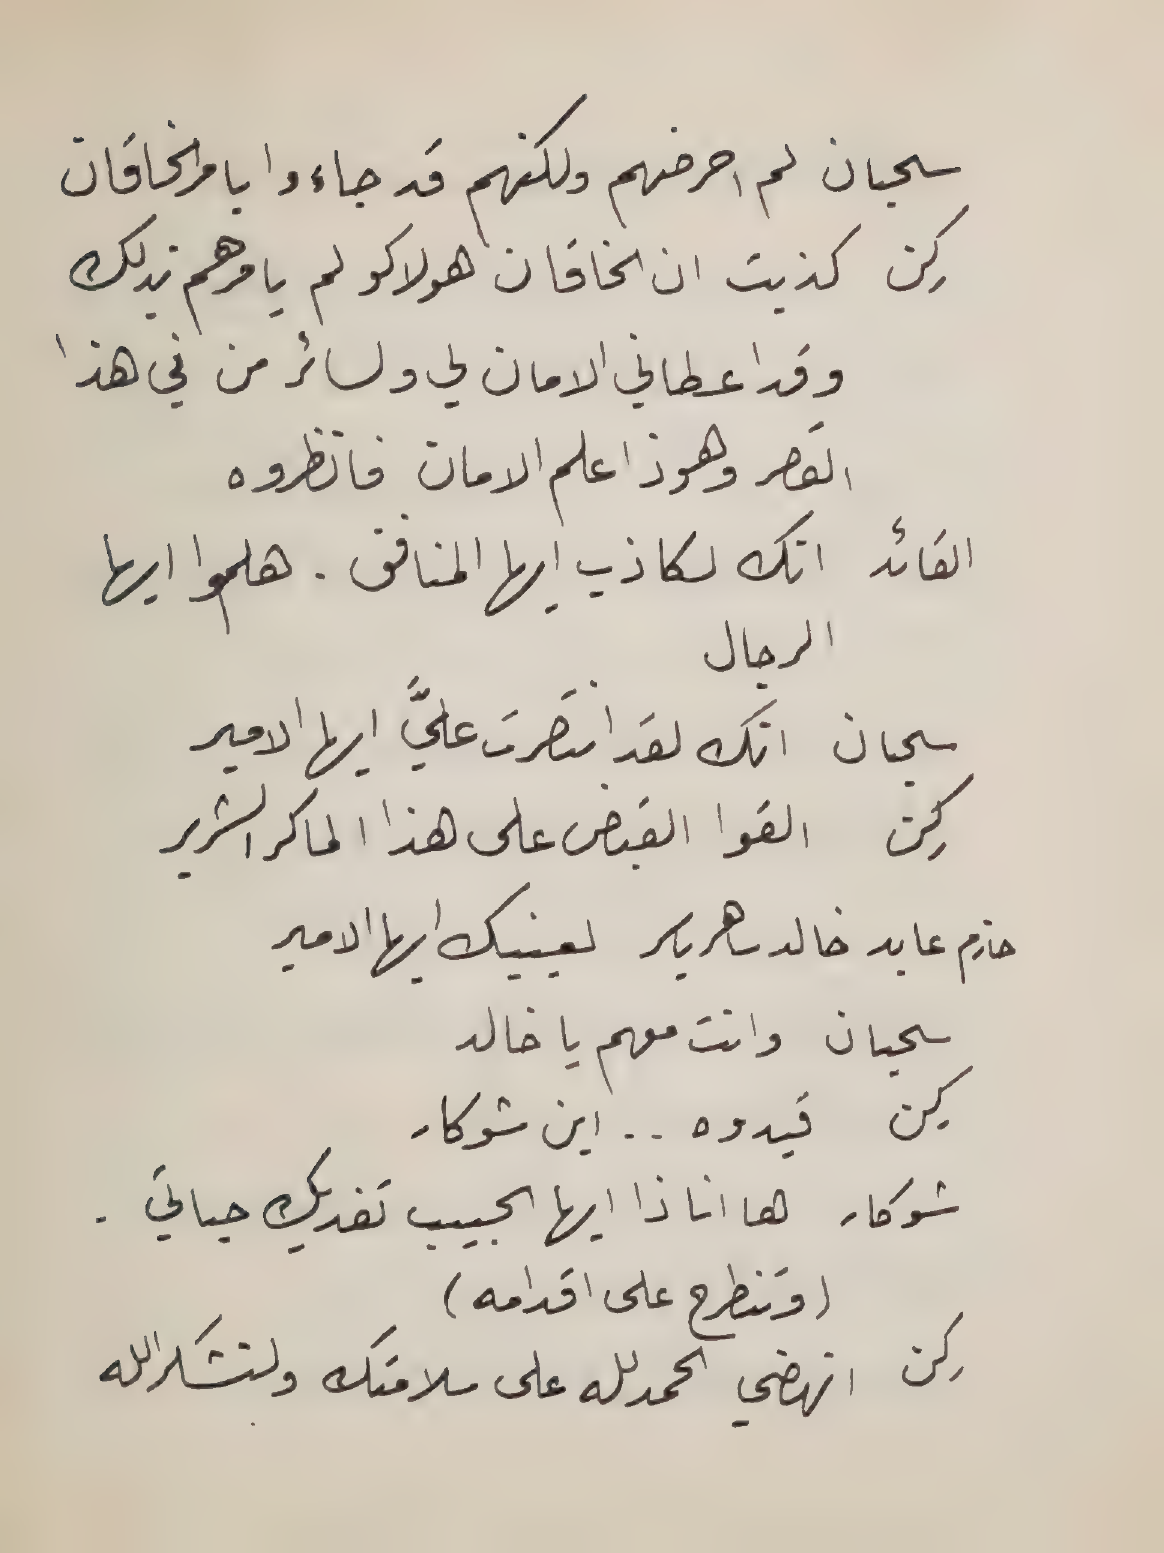 سحبان لم احرضهم ولكنهم قد جاءوا بامر الخاقان
ركن كذبت ان الخاقان هولاكو لم يامرهم بذلك
وقد اعطاني الامان لي ولسائر من في هذا
القصر وهوذا علم الامان فانظروه
القائد انك لكاذب ايها المنافق . هلموا ايها
الرجال
سحبان انك لقد انتصرت عليَّ ايها الامير
ركن القوا القبض على هذا الماكر الشرير
حازم عابد خالد ساهر ياسر لعينيك ايها الامير
سحبان وانت معهم يا خالد
ركن قيدوه .. اين شوكار
شوكار ها انا ذا ايها الحبيب تفديك حياتي .
(وتنطرح على اقدامه)
ركن انهضي الحمد لله على سلامتك ولنشكر الله